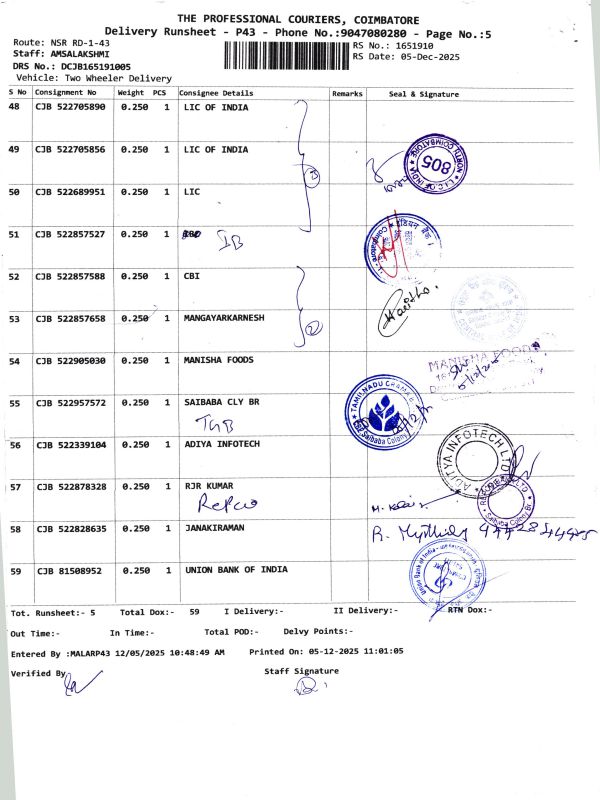 THE PROFESSIONAL COURIERS, COIMBATORE
Delivery Runsheet - P43 - Phone No.:9047080280 - Page No.:5
Route: NSR RD-1-43
RS No.: 1651910
Staff: AMSALAKSHMI
RS Date: 05-Dec-2025
DRS No.: DCJB165191005
Vehicle: Two Wheeler Delivery
S No Consignment No Weight PCS Consignee Details Remarks Seal & Signature
48 CJB 522705890 0.250 1 LIC OF INDIA
49 CJB 522705856 0.250 1 LIC OF INDIA
L.I.C. OF INDIA 805 COIMBATORE
50 CJB 522689951 0.250 1 LIC
3
51 CJB 522857527 0.250 1 IB
52 CJB 522857588 0.250 1 CBI
Haritha.
53 CJB 522857658 0.250 1 MANGAYARKARNESH
2
54 CJB 522905030 0.250 1 MANISHA FOODS
MANISHA FOODS
55 CJB 522957572 0.250 1 SAIBABA CLY BR
TGB
TAMILNADU GRAMA B
Saibaba Colony
56 CJB 522339104 0.250 1 ADIYA INFOTECH
ADITYA INFOTECH LTD
57 CJB 522878328 0.250 1 RJR KUMAR
Repco
Saibaba Colony Br
58 CJB 522828635 0.250 1 JANAKIRAMAN
59 CJB 81508952 0.250 1 UNION BANK OF INDIA
Union Bank of India
Tot. Runsheet:- 5 Total Dox:- 59 I Delivery:- II Delivery:- RTN Dox:-
Out Time:- In Time:- Total POD:- Delvy Points:-
Entered By :MALARP43 12/05/2025 10:48:49 AM Printed On: 05-12-2025 11:01:05
Verified By Staff Signature